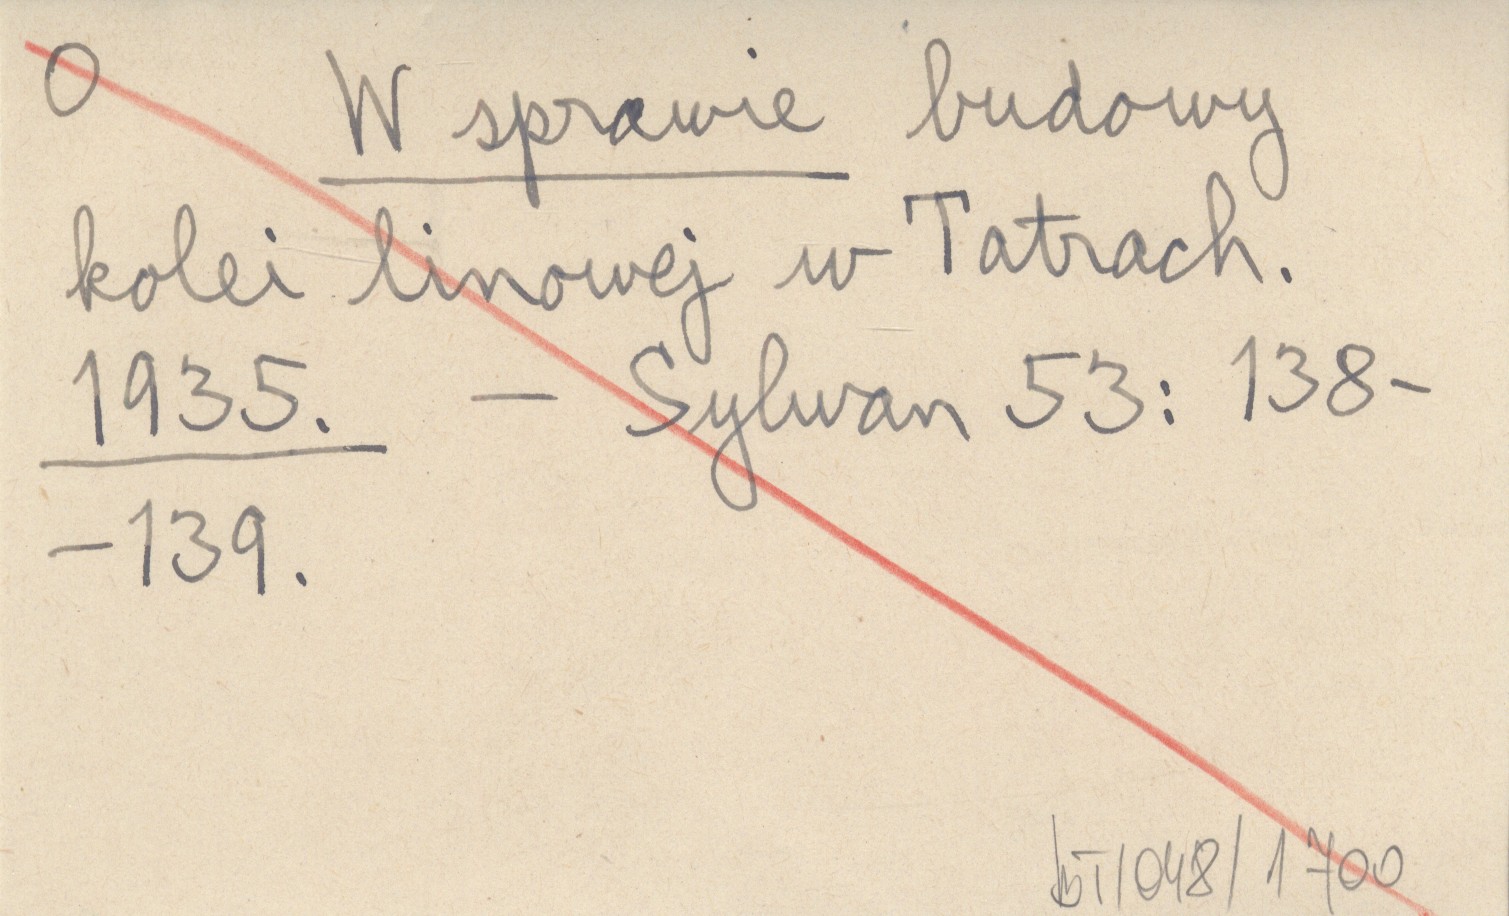 O W sprawie budowy
kolei linowej w Tatrach.
1935. – Sylwan 53: 138-
-139.
1700